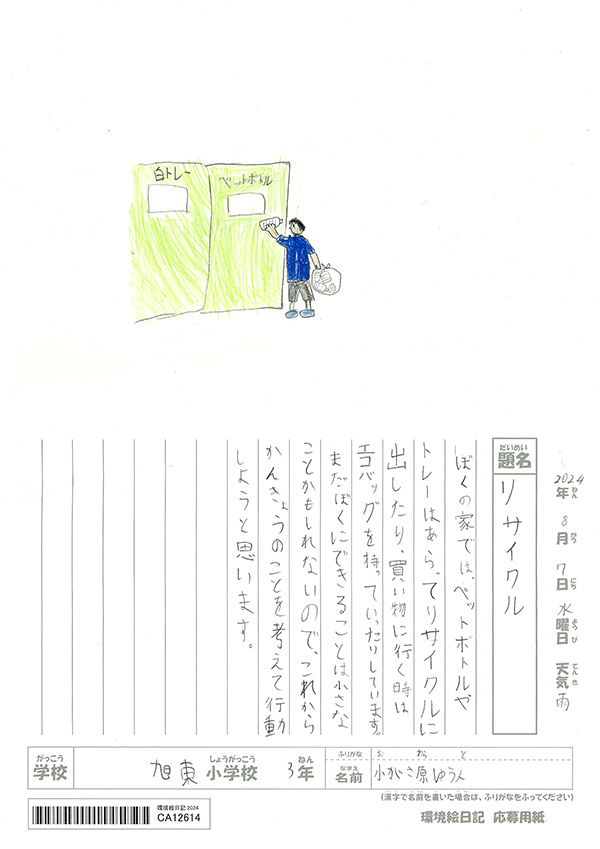 白トレー
ペットボトル
2024年 8月 7日 水曜日 天気 雨
ねん がつ にち ようび てんき
だいめい
題名
リサイクル
ぼくの家では、ペットボトルや
トレーはあらってリサイクルに
出したり、買い物に行く時は
エコバッグを持っていったりしています。
まだぼくにできることは小さな
ことかもしれないので、これから
かんきょうのことを考えて行動
しようと思います。
がっこう
学校
しょうがっこう ねん
旭東 小学校 3年
ふりがな
なまえ
名前
小がさ原 ゆう人
(漢字で名前を書いた場合は、ふりがなをふってください)
環境絵日記 2024
CA12614
環境絵日記 応募用紙